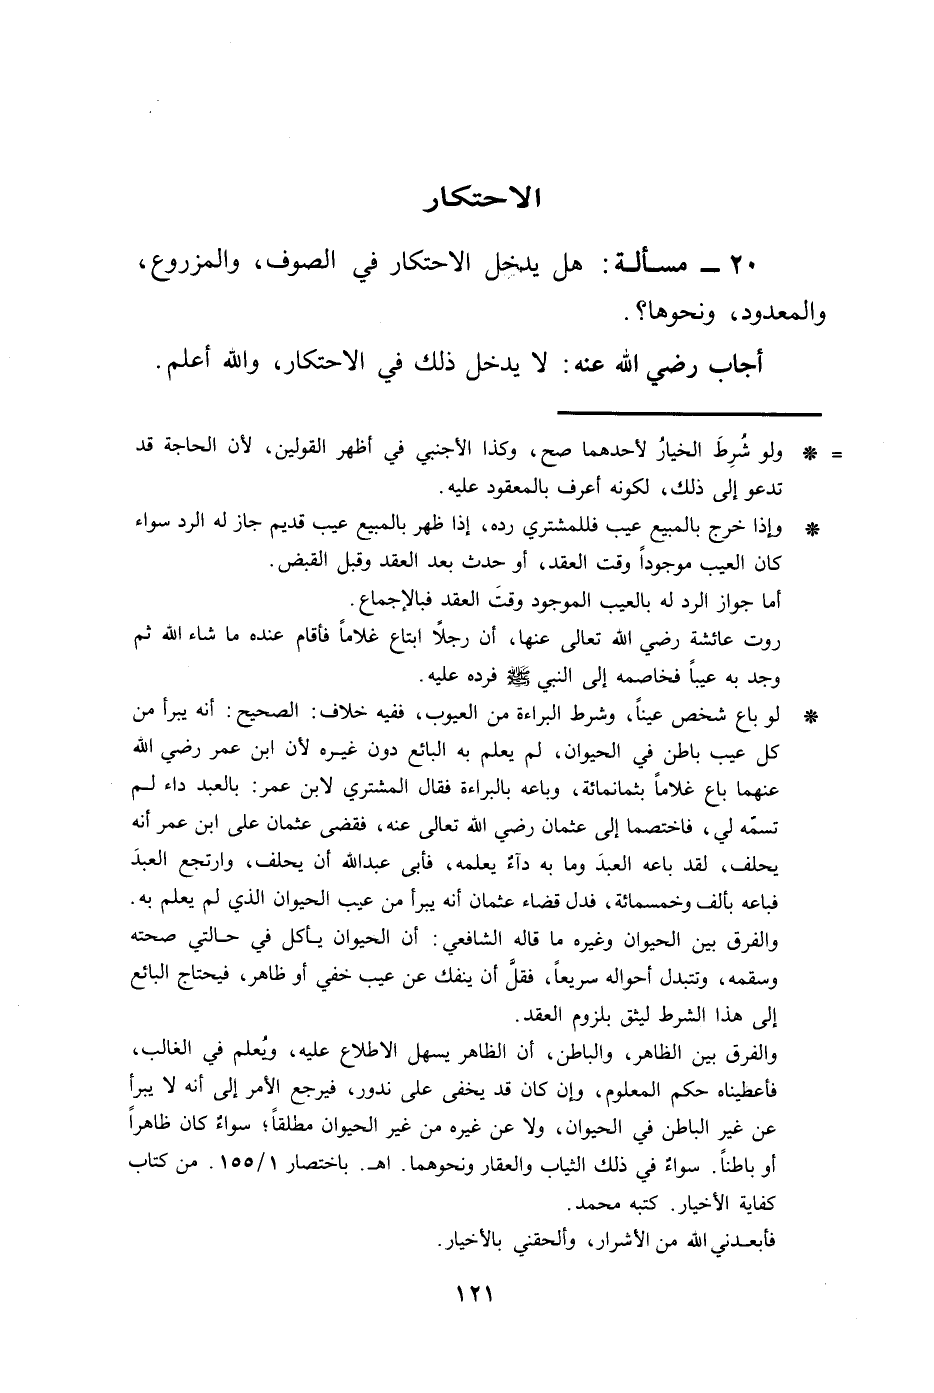 الاحتكار
٢٠ ـ مسألة: هل يدخل الاحتكار في الصوف، والمزروع،
والمعدود، ونحوها؟.
أجاب رضي الله عنه: لا يدخل ذلك في الاحتكار، والله أعلم.
= * ولو شُرِطَ الخيارُ لأحدهما صح، وكذا الأجنبي في أظهر القولين، لأن الحاجة قد
تدعو إلى ذلك، لكونه أعرف بالمعقود عليه.
* وإذا خرج بالمبيع عيب فللمشتري رده، إذا ظهر بالمبيع عيب قديم جاز له الرد سواء
كان العيب موجوداً وقت العقد، أو حدث بعد العقد وقبل القبض.
أما جواز الرد له بالعيب الموجود وقتَ العقد فبالإجماع.
روت عائشة رضي الله تعالى عنها، أن رجلًا ابتاع غلاماً فأقام عنده ما شاء الله ثم
وجد به عيباً فخاصمه إلى النبي ﷺ فرده عليه.
* لو باع شخص عيناً، وشرط البراءة من العيوب، ففيه خلاف: الصحيح: أنه يبرأ من
كل عيب باطن في الحيوان، لم يعلم به البائع دون غيره لأن ابن عمر رضي الله
عنهما باع غلاماً بثمانمائة، وباعه بالبراءة فقال المشتري لابن عمر: بالعبد داء لم
تسمّه لي، فاختصما إلى عثمان رضي الله تعالى عنه، فقضى عثمان على ابن عمر أنه
يحلف، لقد باعه العبدَ وما به دآءٌ يعلمه، فأبى عبدالله أن يحلف، وارتجع العبدَ
فباعه بألف وخمسمائة، فدل قضاء عثمان أنه يبرأ من عيب الحيوان الذي لم يعلم به.
والفرق بين الحيوان وغيره ما قاله الشافعي: أن الحيوان يأكل في حالتي صحته
وسقمه، وتتبدل أحواله سريعاً، فقلَّ أن ينفك عن عيب خفي أو ظاهر، فيحتاج البائع
إلى هذا الشرط ليثق بلزوم العقد.
والفرق بين الظاهر، والباطن، أن الظاهر يسهل الاطلاع عليه، ويُعلم في الغالب،
فأعطيناه حكم المعلوم، وإن كان قد يخفى على ندور، فيرجع الأمر إلى أنه لا يبرأ
عن غير الباطن في الحيوان، ولا عن غيره من غير الحيوان مطلقاً؛ سواءٌ كان ظاهراً
أو باطناً. سواءٌ في ذلك الثياب والعقار ونحوهما. اهـ. باختصار ١/١٥٥. من كتاب
كفاية الأخيار. كتبه محمد.
فأبعدني الله من الأشرار، وألحقني بالأخيار.
١٢١